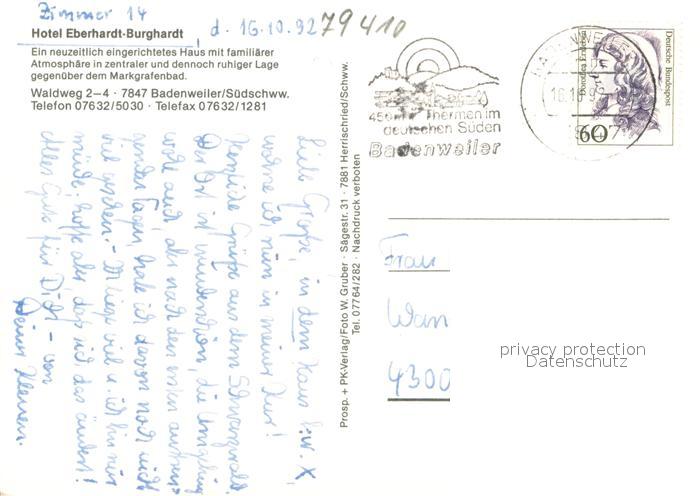 Zimmer 14
d. 16.10.92
79410
Hotel Eberhardt-Burghardt
Ein neuzeitlich eingerichtetes Haus mit familiärer
Atmosphäre in zentraler und dennoch ruhiger Lage
gegenüber dem Markgrafenbad.
Waldweg 2–4 · 7847 Badenweiler/Südschww.
Telefon 07632/5030 · Telefax 07632/1281
Liebe Große, in dem Haus b.w. X,
wohne ich nun in meiner Kur!
Herzliche Grüße aus dem Schwarzwald.
Der Ort ist wunderschön, die Umgebung
wohl auch, aber nach den ersten
Tagen, habe ich davon noch nicht
viel gesehen. - Ich liege viel u. ich bin nur
müde, hoffe aber, daß sich das ändert!
Alles Gute für Dich - von
Deiner Kleinen.
Prosp. + PK-Verlag/Foto W. Gruber · Sägestr. 31 · 7881 Herrischried/Schww.
Tel. 07764/282 · Nachdruck verboten
Thermen im
deutschen Süden
Badenweiler
BADENWEILER
16.10.92
7847
Dorothea Erxleben
Deutsche Bundespost
60
Frau
Wan
4300
privacy protection
Datenschutz